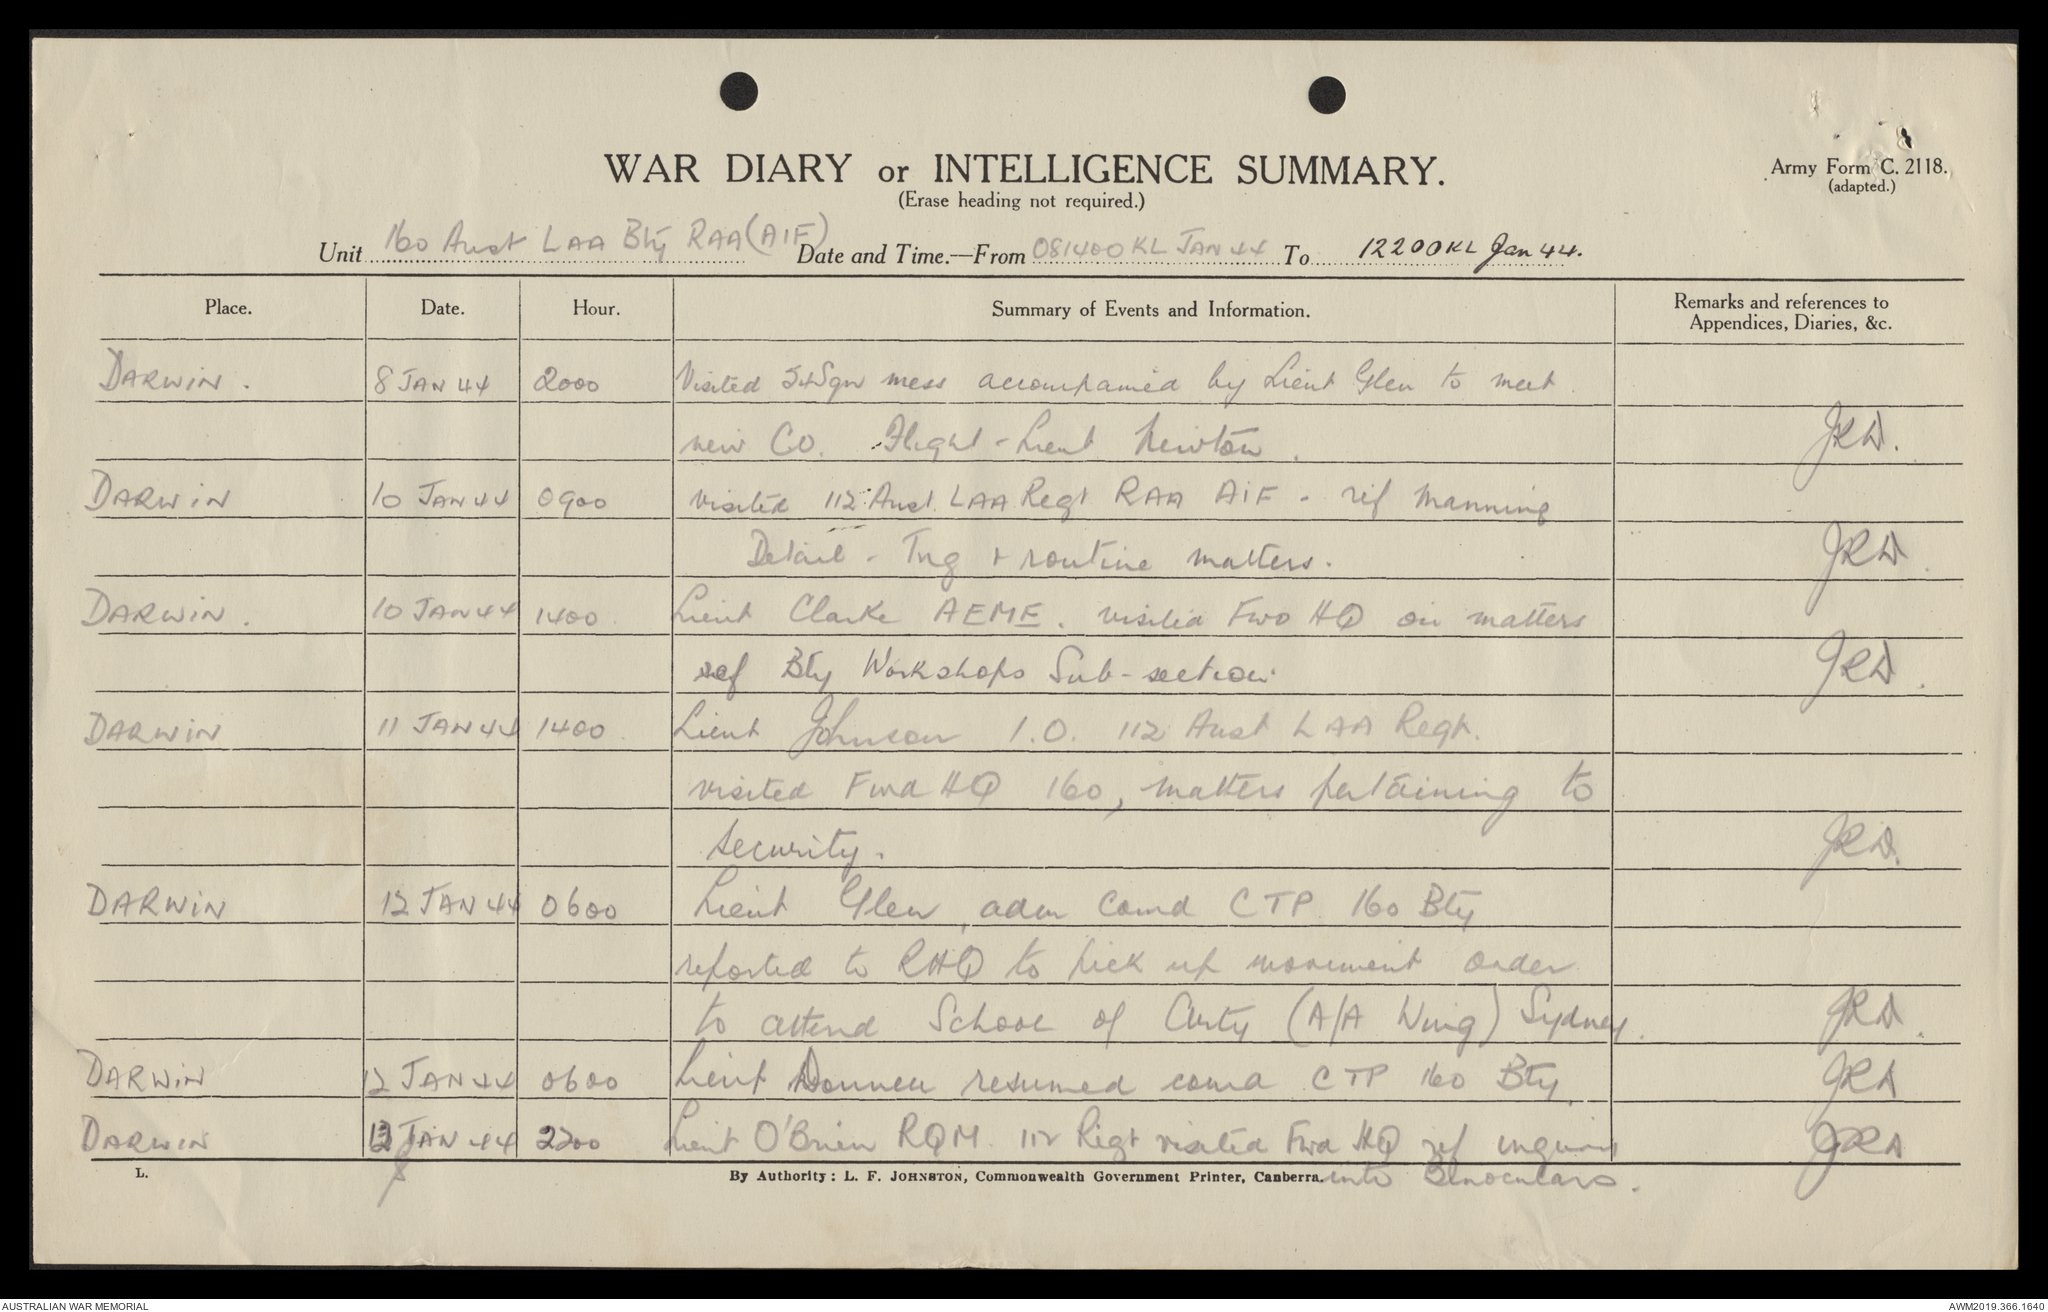 WAR DIARY or INTELLIGENCE SUMMARY.
(Erase heading not required.)
Army Form C. 2118.
(adapted.)
Unit 160 Aust LAA Bty RAA (AIF) Date and Time.—From 081400KL JAN 44 To 122200KL Jan 44.
Place. Date. Hour. Summary of Events and Information. Remarks and references to
Appendices, Diaries, &c.
DARWIN. 8 JAN 44 2000 Visited 54 Sqn mess accompanied by Lieut Glen to meet
new CO. Flight-Lieut Newton. JRD.
DARWIN 10 JAN 44 0900 Visited 112 Aust. LAA Regt RAA AIF - ref Manning
Detail - Tng + routine matters. JRD.
DARWIN. 10 JAN 44 1400. Lieut Clarke AEME. visited Fwd HQ on matters
ref Bty Workshops Sub-section. JRD.
DARWIN 11 JAN 44 1400. Lieut Johnson I.O. 112 Aust LAA Regt.
visited Fwd HQ 160, matters pertaining to
security. JRD.
DARWIN 12 JAN 44 0600 Lieut Glen, adm Comd CTP 160 Bty
reported to RHQ to pick up movement order
to attend School of Arty (A/A Wing) Sydney. JRD.
DARWIN 12 JAN 44 0600 Lieut resumed comd CTP 160 Bty. JRD
DARWIN 12 JAN 44 2200 Lieut O'Brien RQM 112 Regt visited Fwd HQ ref
into Binoculars.
JRD
L. By Authority: L. F. JOHNSTON, Commonwealth Government Printer, Canberra.
AUSTRALIAN WAR MEMORIAL AWM2019.366.1640